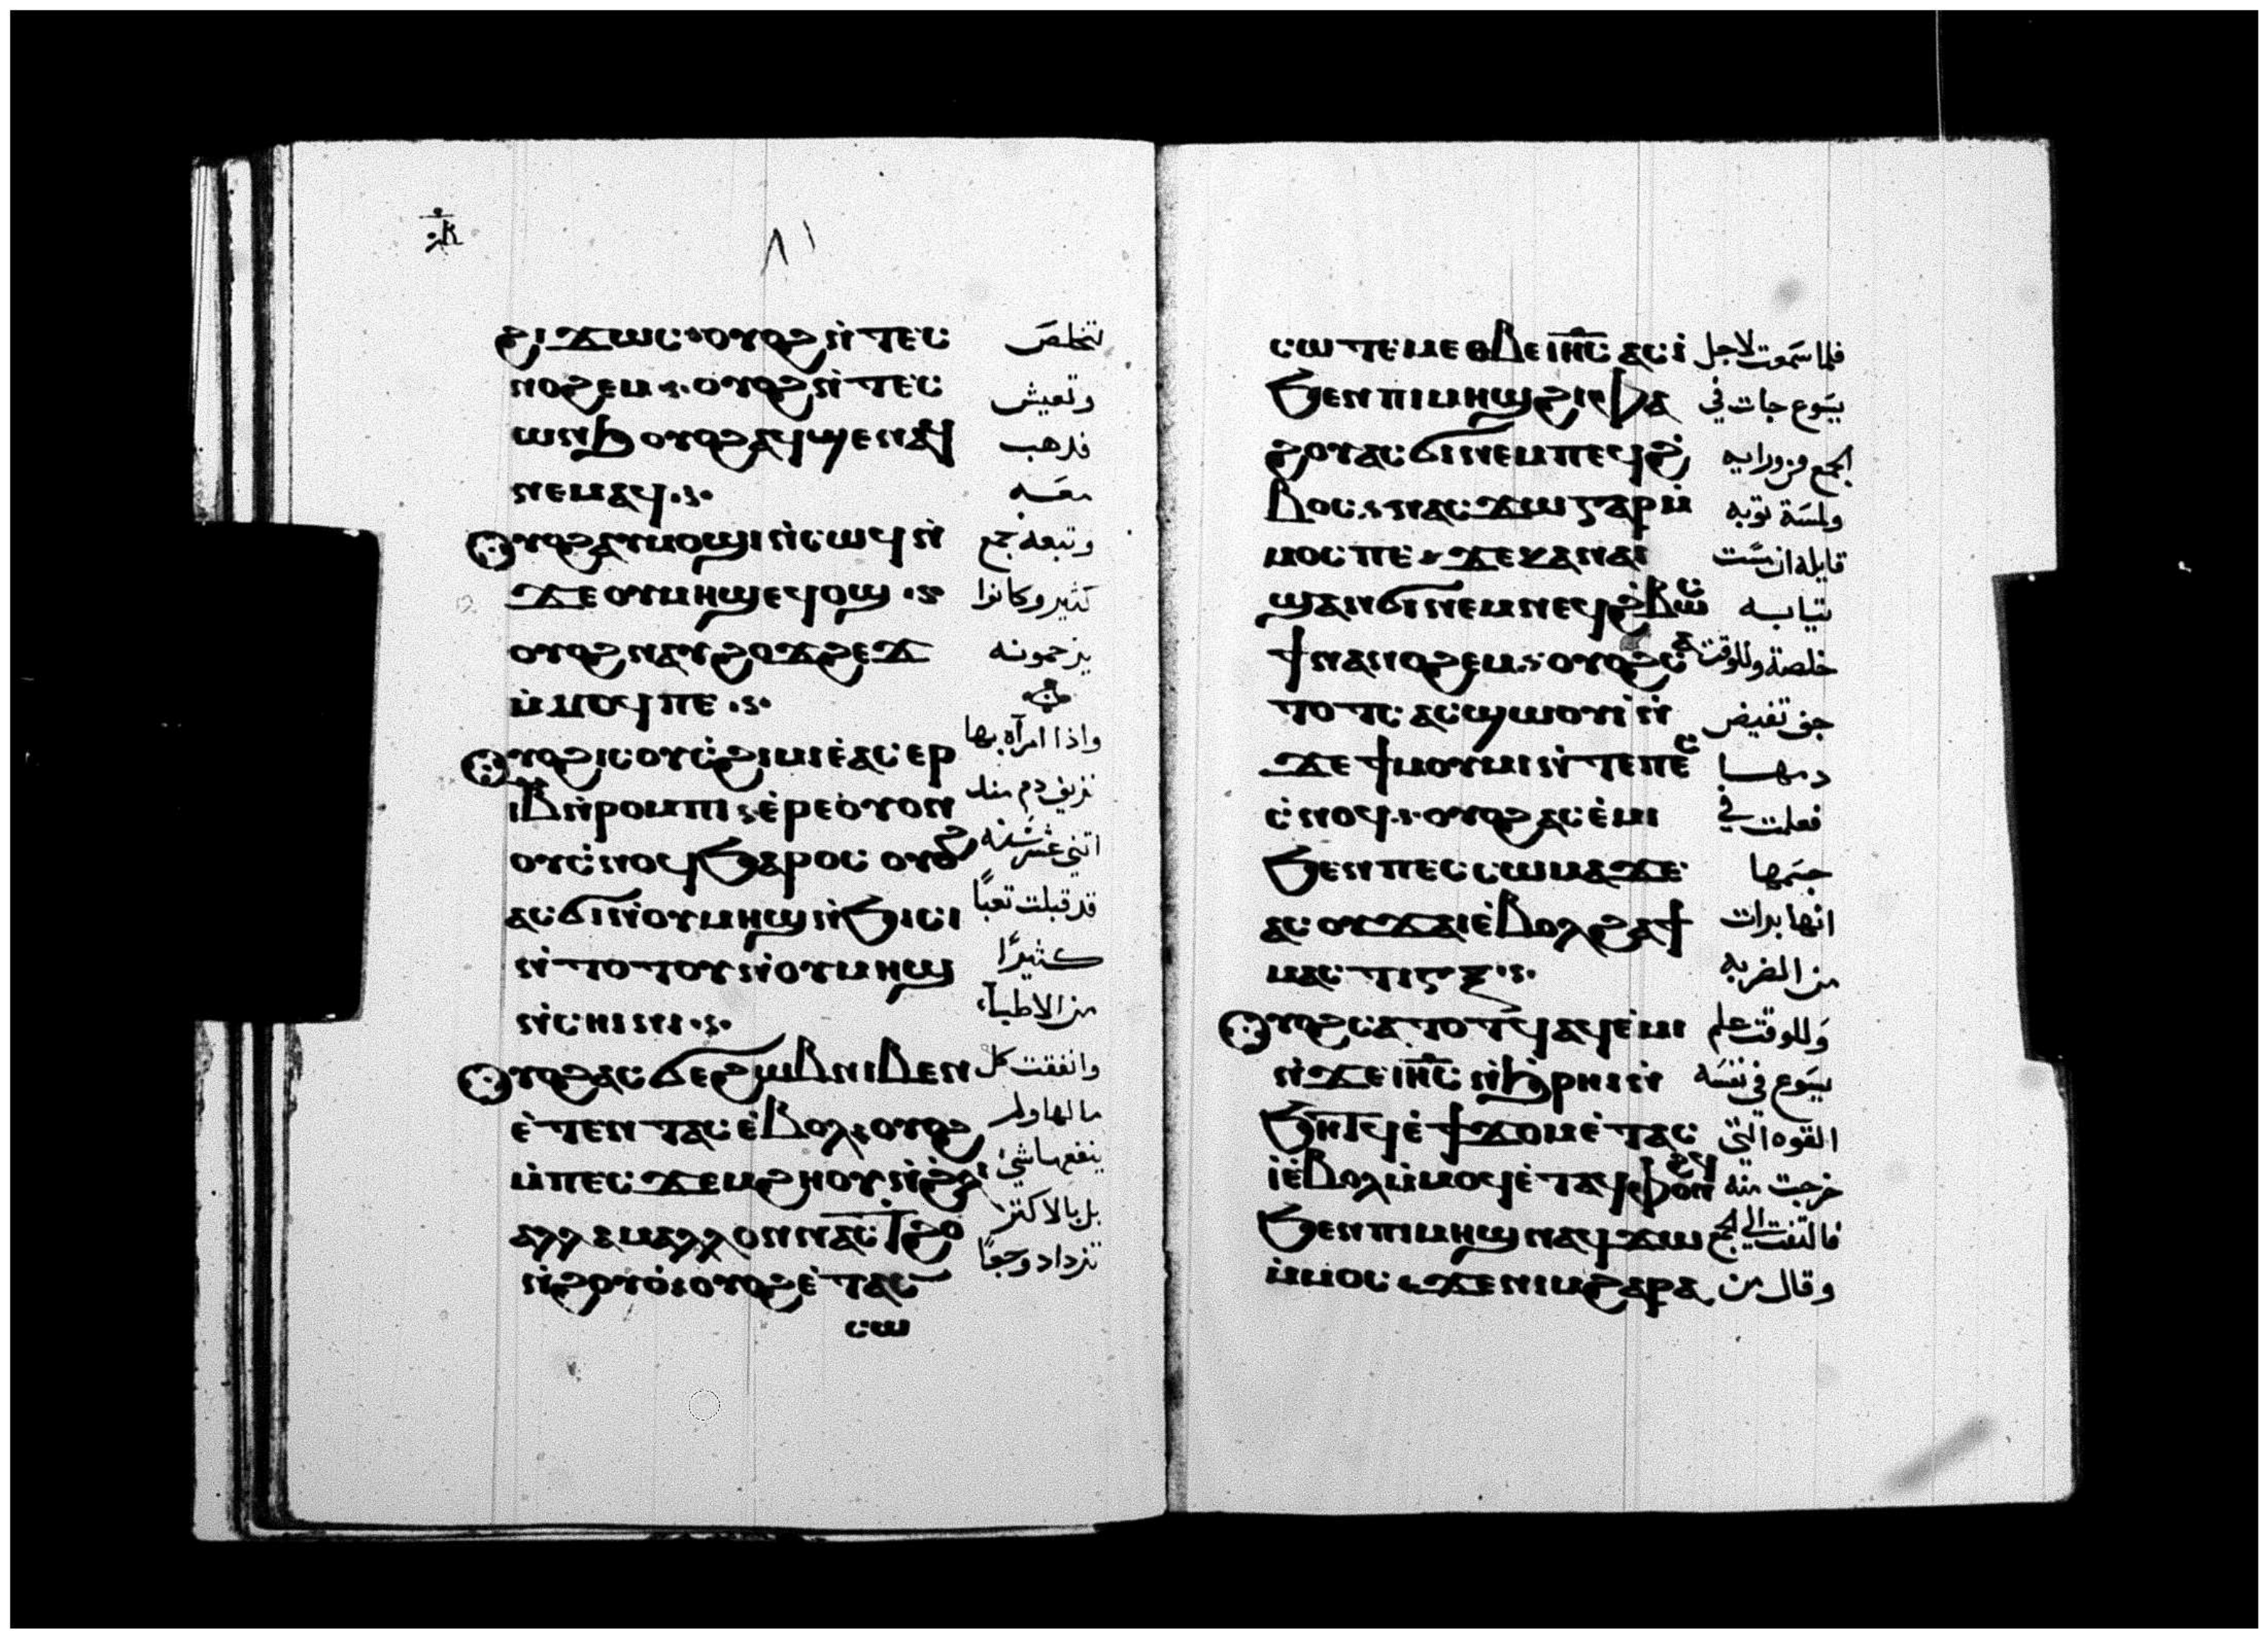 ⲕ̅
٨١
ϩⲓϫⲱⲥ ⲟⲩⲟϩ ⲛ̀ⲧⲉⲥ لتخلص
ⲛⲟϩⲉⲙ ⲟⲩⲟϩ ⲛ̀ⲧⲉⲥ وتعيش
ⲱⲛϧ ⲟⲩⲟϩ ⲁϥϣⲉⲛⲁϥ فدهب
ⲛⲉⲙⲁϥ معه
ⲟⲩⲟϩ ⲁⲩⲙⲟϣⲓ ⲛ̀ⲥⲱϥ ⲛ̀ وتبعه جمع
ϫⲉ ⲟⲩⲙⲏϣ ⲉϥⲟϣ كثير وكانوا
ⲟⲩⲟϩ ⲛⲁⲩϩⲟϫϩⲉϫ يزحمونه
ⲙ̀ⲙⲟϥ ⲡⲉ
ⲟⲩⲟϩ ⲓⲥ ⲟⲩⲥ̀ϩⲓⲙⲓ ⲉ̀ⲁⲥⲉⲣ واذا امرآه بها
ⲓⲃ ⲛ̀ⲣⲟⲙⲡⲓ ⲉ̀ⲣⲉ ⲟⲩⲟⲛ نزيف دم مند
ⲟⲩⲥ̀ⲛⲟϥ ϧⲁⲣⲟⲥ ⲟⲩⲟϩ اتني عشر سنه
ⲁⲥϭⲓ ⲛ̀ⲟⲩⲙⲏϣ ⲛ̀ϧⲓⲥⲓ قد قبلت تعبًا
ⲛ̀ⲧⲟⲧⲟⲩ ⲛ̀ⲟⲩⲙⲏϣ كثيرًا
ⲛ̀ⲥⲏⲓⲛⲓ من الاطبآء
ⲟⲩⲟϩ ⲁⲥϭⲉ ϩⲱⲃ ⲛⲓⲃⲉⲛ وانفقت كل
ⲉ̀ⲧⲉⲛⲧⲁⲥ ⲉ̀ⲃⲟⲗ ⲟⲩⲟϩ ما لها ولم
ⲙ̀ⲡⲉⲥϫⲉⲙϩⲏⲟⲩ ⲛ̀ϩ̀ⲗⲓ ينفعها شي
ⲁⲗⲗⲁ ⲙⲁⲗⲗⲟⲛ ⲛⲁⲥϯϩⲟ بل بالاكتر
ⲛ̀ϩⲟⲩⲟ̀ ⲟⲩⲟϩ ⲉ̀ⲧⲁⲥ تزداد وجعًا
ⲥⲱ
ⲥⲱⲧⲉⲙ ⲉⲑⲃⲉ ⲓⲏ̅ⲥ ⲁⲥⲓ̀ فلما سمعت لاجل
ϧⲉⲛ ⲡⲓⲙⲏϣ ϩⲓⲫⲁ يسوع جات في
ϩⲟⲩ ⲁⲥϭⲓ ⲛⲉⲙ ⲡⲉϥϩ̀ الجمع من ورايه
ⲃⲟⲥ ⲛⲁⲥϫⲱ ⲅⲁⲣ ⲙ̀ ولمسة توبه
ⲙⲟⲥ ⲡⲉ ϫⲉ ⲕⲁⲛ ⲁⲓ قايله ان مست
ϣⲁⲛϭⲓ ⲛⲉⲙ ⲛⲉϥϩ̀ⲃⲱⲥ تيابه
ϯⲛⲁⲛⲟϩⲉⲙ ⲟⲩⲟϩ ⲥⲁ خلصة وللوقت
ⲧⲟⲧⲥ ⲁⲥϣⲱⲟⲩⲓ ⲛ̀ جف تفيض
ϫⲉ ϯⲙⲟⲩⲙⲓ ⲛ̀ⲧⲉ ⲡⲉⲥ دمها
ⲥ̀ⲛⲟϥ ⲟⲩⲟϩ ⲁⲥⲉ̀ⲙⲓ فعلمت في
ϧⲉⲛ ⲡⲉⲥⲥⲱⲙⲁ ϫⲉ جسمها
ⲁⲥⲟⲩϫⲁⲓ ⲉ̀ⲃⲟⲗϩⲁ ϯ انها برات
ⲙⲁⲥⲧⲓⲅⲝ من الضربه
ⲟⲩⲟϩ ⲥⲁⲧⲟⲧϥ ⲁϥⲉ̀ⲙⲓ وللوقت علم
ⲛ̀ϫⲉ ⲓⲏ̅ⲥ ⲛ̀ϧⲣⲏⲓ ⲛ̀ يسوع في نفسه
ϧⲏⲧϥ ⲉ̀ϯϫⲟⲙ ⲉ̀ⲧⲁⲥ القوه التي
ⲓ̀ ⲉ̀ⲃⲟⲗ ⲙ̀ⲙⲟϥ ⲉ̀ⲧⲁϥⲫⲟⲛϩϥ خرجت منه
ϧⲉⲛ ⲡⲓⲙⲏϣ ⲛⲁϥϫⲱ فالتفت الي الجمع
ⲙ̀ⲙⲟⲥ ϫⲉ ⲛⲓⲙ ϩⲁⲣⲁ وقال من